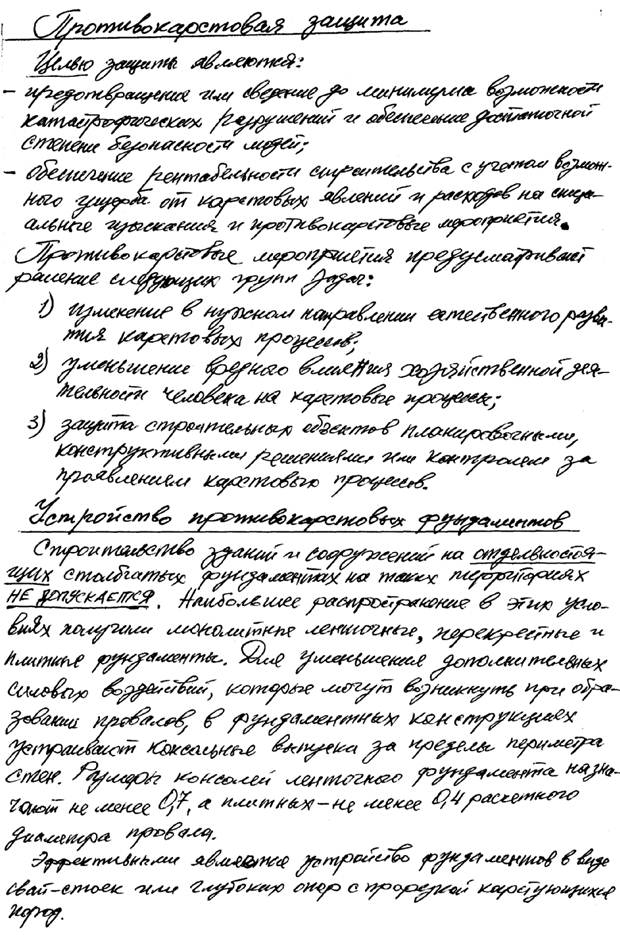 Противокарстовая защита
Целью защиты являются:
- предотвращение или сведение до минимума возможности
катастрофических разрушений и обеспечение достаточной
степени безопасности людей;
- обеспечение рентабельности строительства с учетом возмож-
ного ущерба от карстовых явлений и расходов на специ-
альные изыскания и противокарстовые мероприятия.
Противокарстовые мероприятия предусматривают
решение следующих групп задач:
1) изменение в нужном направлении естественного разви-
тия карстовых процессов;
2) уменьшение вредного влияния хозяйственной дея-
тельности человека на карстовые процессы;
3) защита строительных объектов планировочными,
конструктивными решениями или контролем за
проявлением карстового процессов.
Устройство противокарстовых фундаментов
Строительство зданий и сооружений на отдельностоя-
щих столбчатых фундаментах на таких территориях
НЕ ДОПУСКАЕТСЯ. Наибольшее распространение в этих усло-
виях получили монолитные ленточные, перекрестные и
плитные фундаменты. Для уменьшения дополнительных
силовых воздействий, которые могут возникнуть при обра-
зовании провалов, в фундаментных конструкциях
устраивают консольные выпуска за пределы периметра
стен. Размеры консолей ленточного фундамента назна-
чают не менее 0,7, а плитных - не менее 0,4 расчетного
диаметра провала.
Эффективными является устройство фундаментов в виде
свай-стоек или глубоких опор с прорезкой карстующихся
пород.